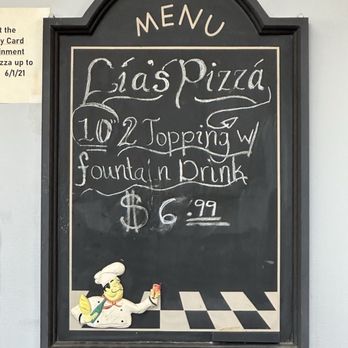 t the
y Card
inment
zza up to
6/1/21
MENU
Lía's Pizzá
10" 2 Topping w/
fountain Drink
$6.99